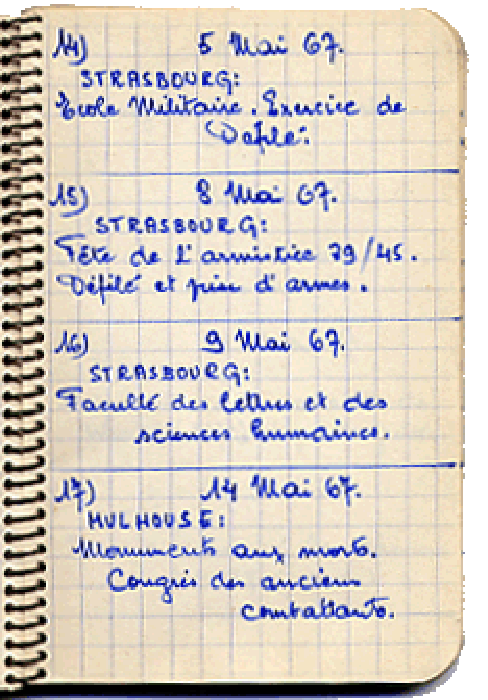 14) 5 Mai 67.
STRASBOURG:
Ecole Militaire. Exercice de
Défilé.
15) 8 Mai 67.
STRASBOURG:
Fête de l'armistice 39/45.
Défilé et prise d'armes.
16) 9 Mai 67.
STRASBOURG:
Faculté des lettres et des
sciences humaines.
17) 14 Mai 67.
MULHOUSE:
Monuments aux morts.
Congrès des anciens
combattants.